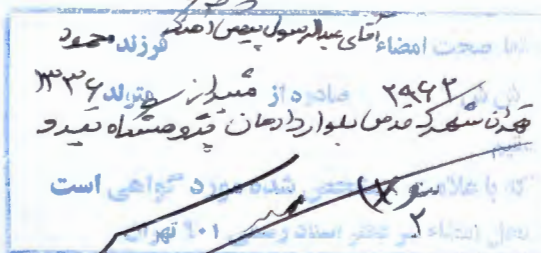 صحت امضاء آقای عبدالرسول فرزند محمود
ش ش ۲۹۶۲ صادره از شیراز متولد ۱۳۳۶
تهران شهرک قدس بلوار دادمان پژوهشگاه نیرو
که با علامت مشخص شده مورد گواهی است
محل امضاء در دفتر اسناد رسمی ۹۰۱ تهران